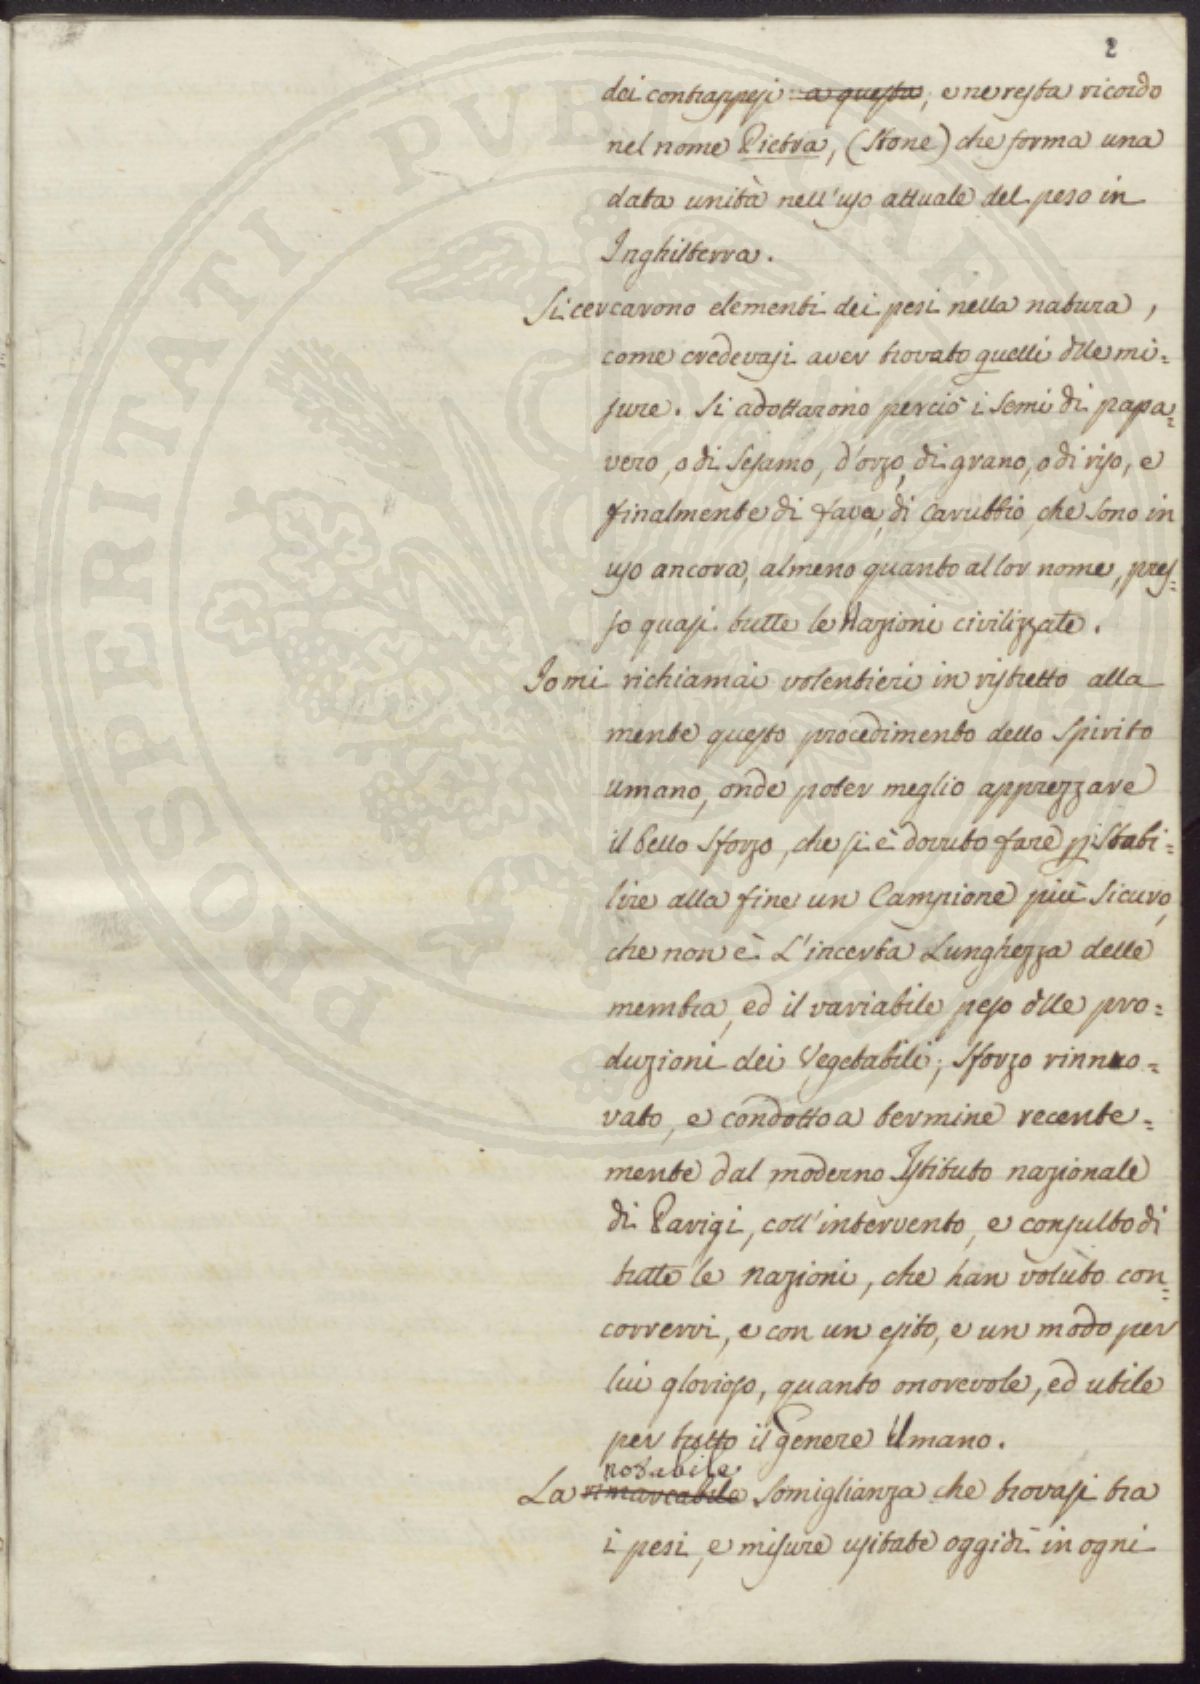 2
dei contrappesi a questa, e ne resta ricordo
nel nome Pietra, (Stone) che forma una
data unità nell'uso attuale del peso in
Inghilterra.
Si cercarono elementi dei pesi nella natura,
come credevasi aver trovato quelli dlle mi=
sure. Si adottarono perciò i semi di papa=
vero, o di Sesamo, d'orzo, di grano, o di riso, e
finalmente di fava, di Carubbio, che sono in
uso ancora, almeno quanto al lor nome, pres=
so quasi tutte le Nazioni civilizzate.
Io mi richiamai volentieri in ristretto alla
mente questo procedimento dello Spirito
Umano, onde poter meglio apprezzare
il bello sforzo, che si è dovuto fare p Stabi=
lire alla fine un Campione più Sicuro,
che non è L'incerta Lunghezza delle
membra, ed il variabile peso dlle pro=
duzioni dei Vegetabili; Sforzo rinno=
vato, e condotto a termine recente=
mente dal moderno Istituto nazionale
di Parigi, coll'intervento, e consulto di
tutte le Nazioni, che han volùto con=
corrervi, e con un esito, e un modo per
lui glorioso, quanto onorevole, ed utile
per tutto il Genere Umano.
notabile
La rimarcabile Somiglianza che trovasi tra
i pesi, e misure usitate oggidì in ogni
PROSPERITATI PUBLICAE